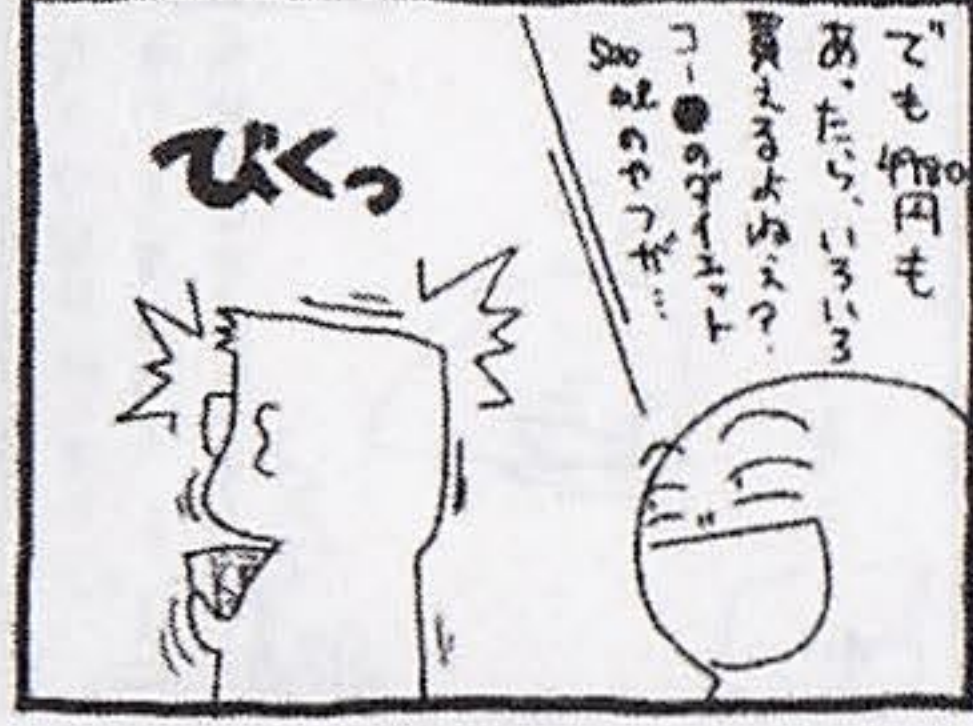 でも4980円も
あったら、いろいろ
買えるよねぇ?
コー●のダイエット
500mlのやつが…
びくっ